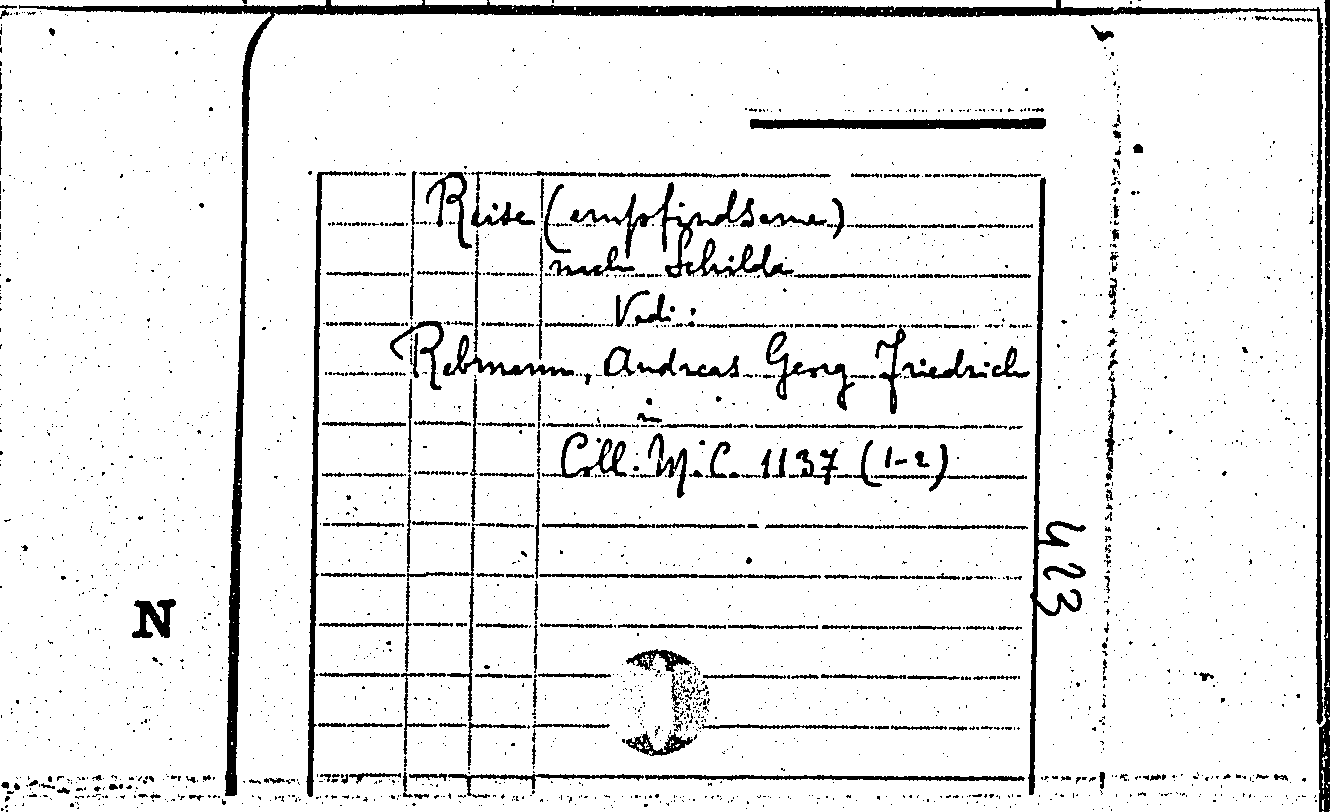 Reise (empfindsame)
nach Schilda
Vedi:
Rebmann, Andreas Georg Friedrich
in
Coll. M.C. 1137 (1-2)
423
N